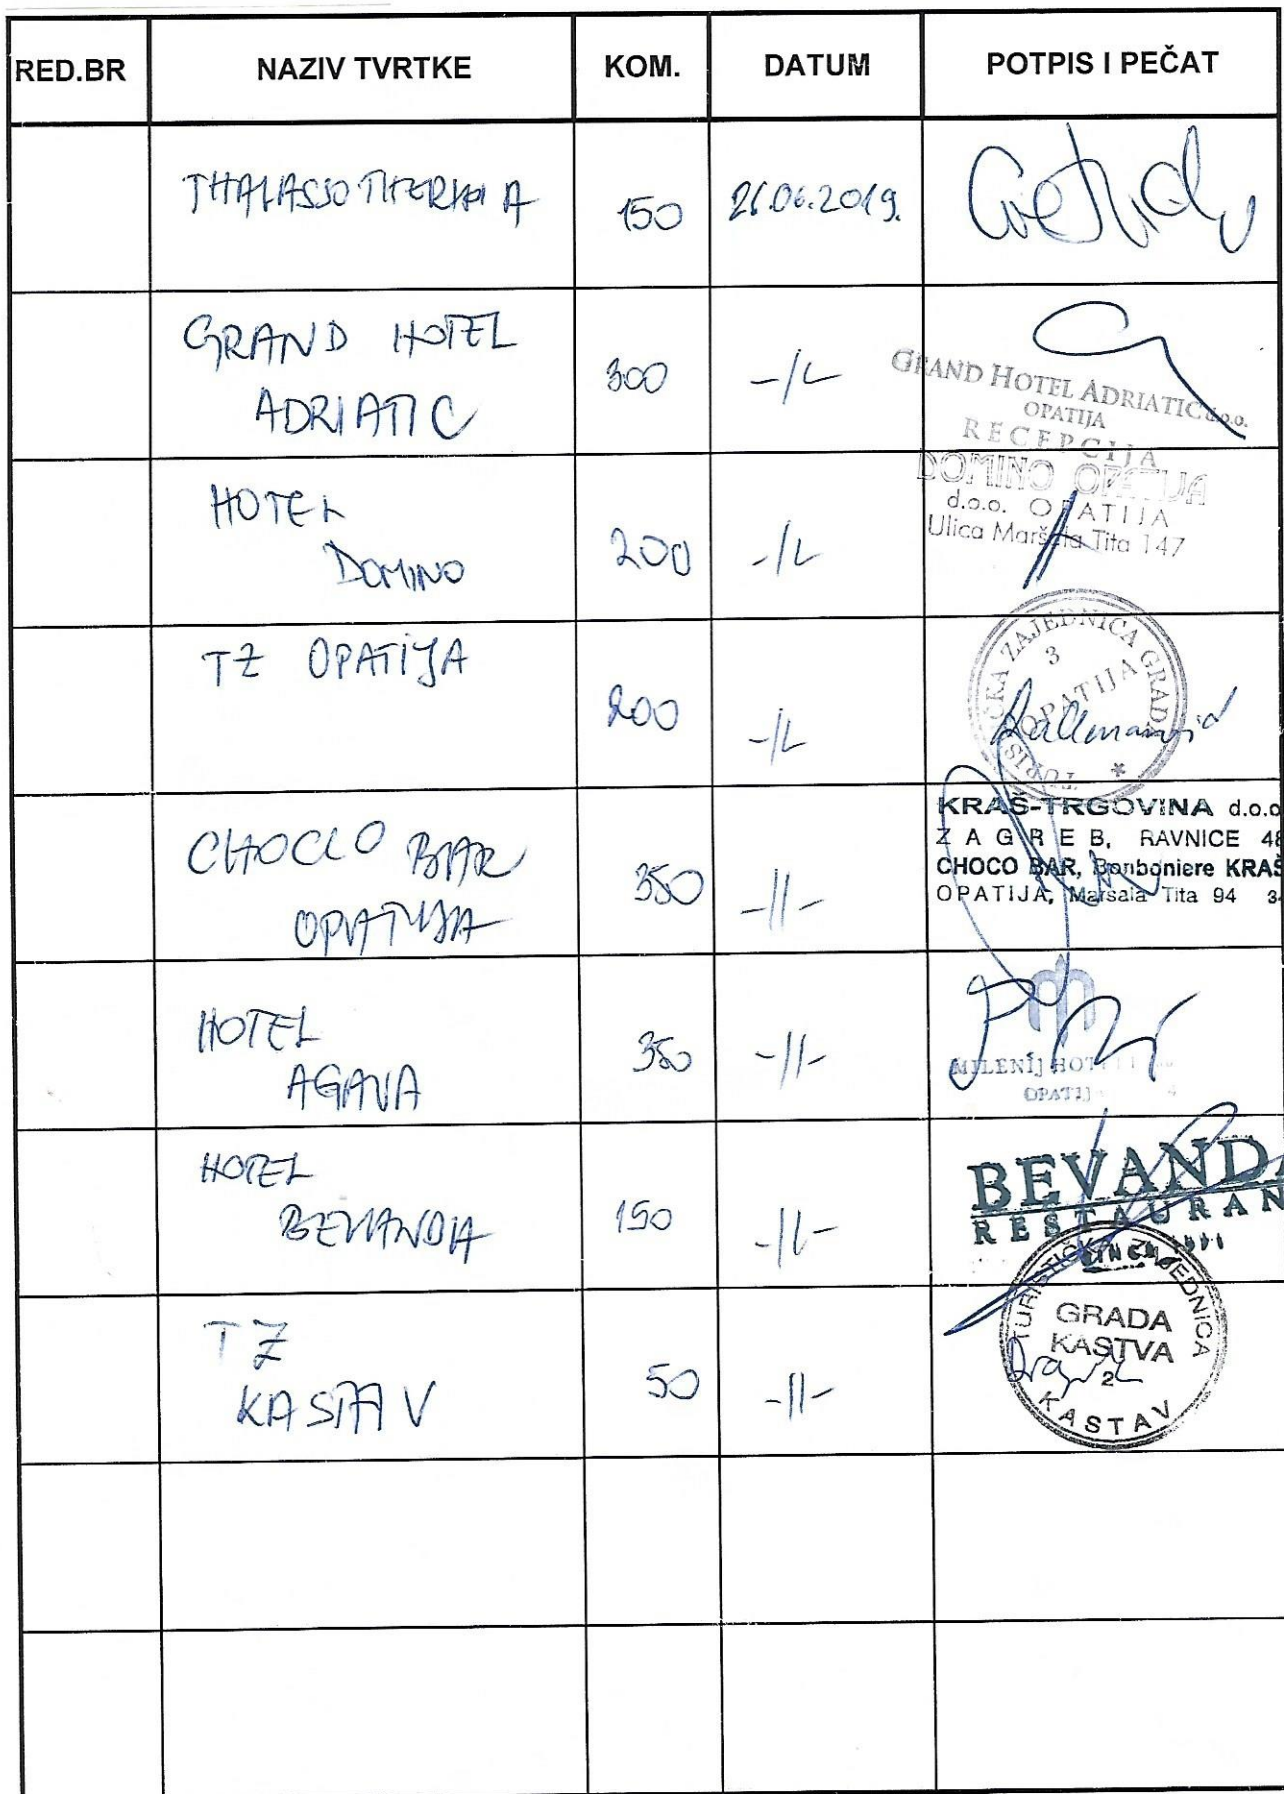 RED.BR NAZIV TVRTKE KOM. DATUM POTPIS I PEČAT
THALASSOTHERAPIA 150 26.06.2019.
GRAND HOTEL
ADRIATIC 300 -//-
GRAND HOTEL ADRIATIC d.o.o.
OPATIJA
RECEPCIJA
HOTEL
DOMINO 200 -//-
DOMINO OPATIJA
d.o.o. OPATIJA
Ulica Maršala Tita 147
TZ OPATIJA 200 -//-
TURISTIČKA ZAJEDNICA GRADA
3
OPATIJA
CHOCLO BAR
OPATIJA 350 -//-
KRAŠ-TRGOVINA d.o.o
ZAGREB, RAVNICE 48
CHOCO BAR, Bonboniere KRAŠ
OPATIJA, Marsala Tita 94 3
HOTEL
AGAVA 350 -//-
MILENIJ HOTELI
OPATIJ
HOTEL
BEVANDA 150 -//-
BEVANDA
RESTAURAN
TZ
KASTAV 50 -//-
TURISTIČKA ZAJEDNICA
GRADA
KASTVA
2
KASTAV